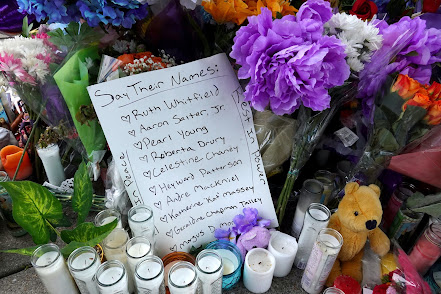 Say Their Names:
♡ Ruth Whitfield
♡ Aaron Salter, Jr.
♡ Pearl Young
♡ Roberta Drury
♡ Celestine Chaney
♡ Heyward Patterson
♡ Andre Mackniel
♡ Katherine Kat Massey
♡ Geraldine Chapman Talley
♡ Margus D.